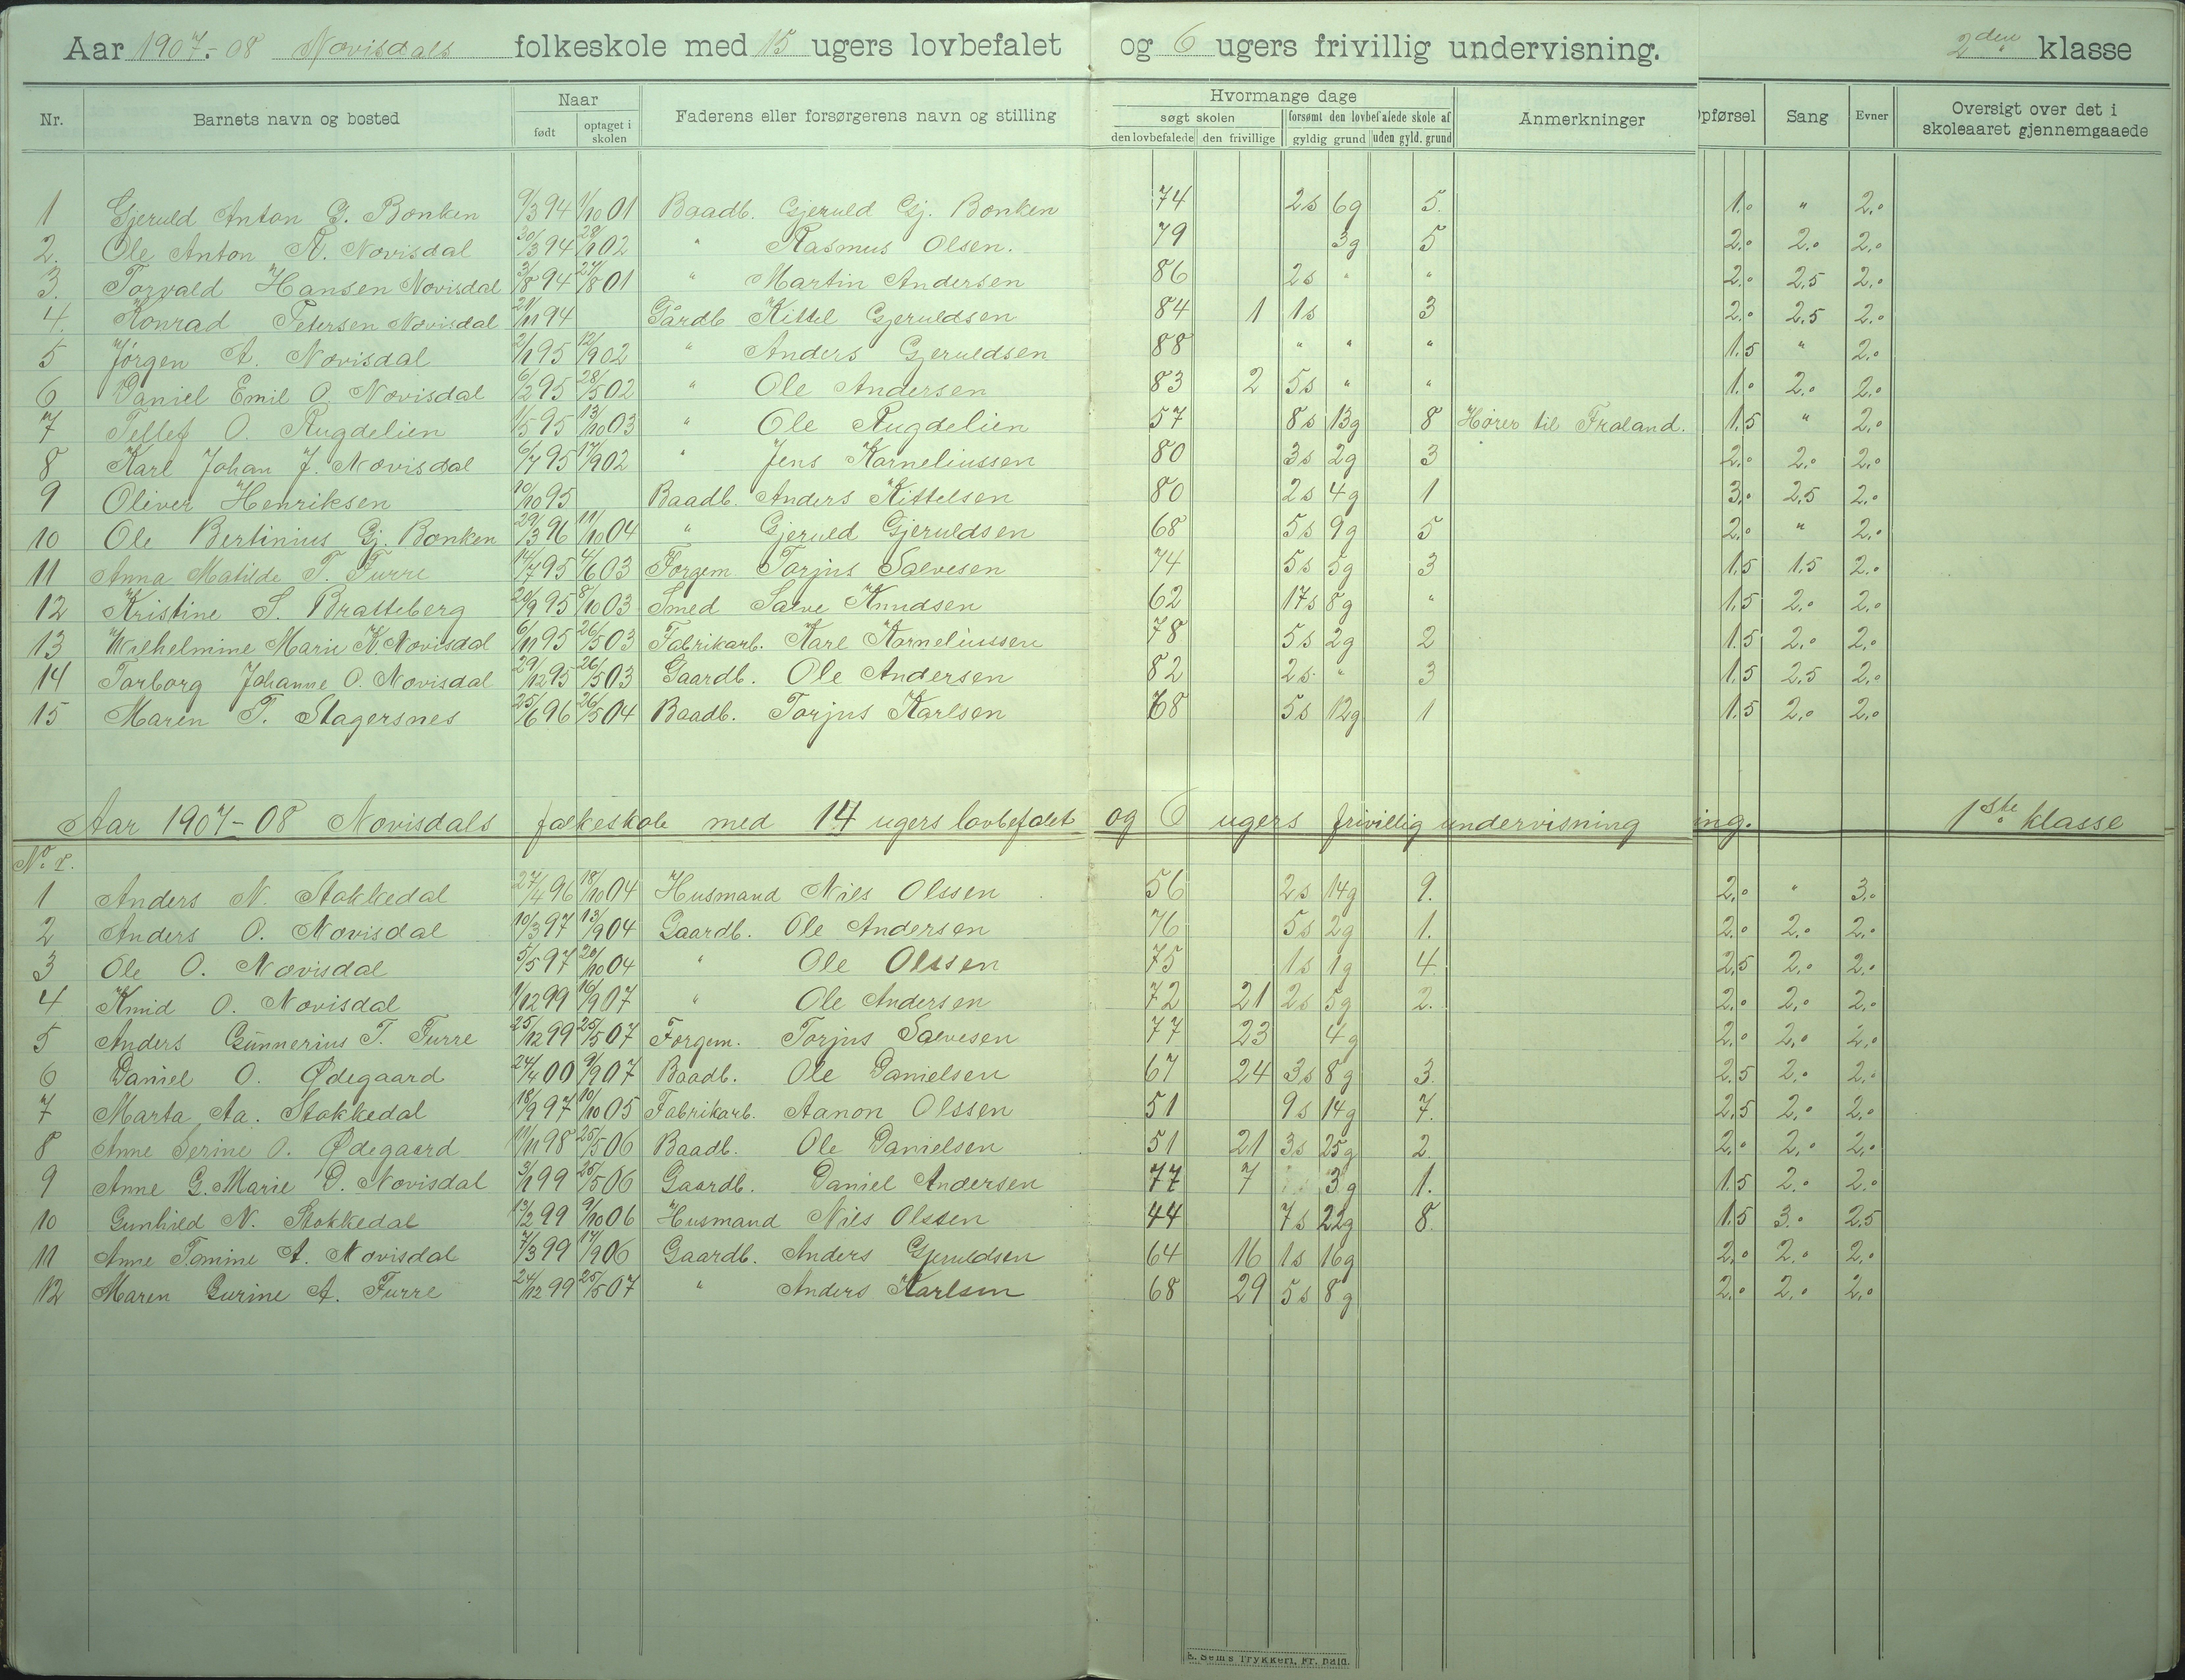 Aar 1907-08 Nævisdals folkeskole med 15 ugers lovbefalet og 6 ugers frivillig undervisning. 2den klasse
Nr. Barnets navn og bosted Naar født optaget i skolen Faderens eller forsørgerens navn og stilling Hvormange dage søgt skolen den lovbefalede den frivillige forsømt den lovbefalede skole af gyldig grund uden gyld. grund Anmerkninger Opførsel Sang Evner Oversigt over det i skoleaaret gjennemgaaede
1 Gjeruld Anton G. Bonken 9/3 94 1/10 01 Baadb. Gjeruld Gj. Bonken 74 2s 6g 5. 1.0 " 2.0
2. Ole Anton R. Nævisdal 30/3 94 28/1 02 " Rasmus Olsen. 79 3g 5 2.0 2.0 2.0
3. Torvald Hansen Nævisdal 3/8 94 27/8 01 " Martin Andersen 86 2s " " 2.0 2.5 2.0
4. Konrad Petersen Nævisdal 21/11 94 Gårdb Kittel Gjeruldsen 84 1 1s 3 2.0 2.5 2.0
5 Jørgen A. Nævisdal 2/1 95 12/9 02 " Anders Gjeruldsen 88 " " " 1.5 " 2.0
6 Daniel Emil O. Nævisdal 6/2 95 28/5 02 " Ole Andersen 83 2 5s " " 1.0 2.0 2.0
7 Tellef O. Rugdelien 1/5 95 13/10 03 " Ole Rugdelien 57 8s 13g 8 Hører til Froland. 1.5 " 2.0
8 Karl Johan J. Nævisdal 6/7 95 17/9 02 " Jens Korneliussen 80 3s 2g 3 2.0 2.0 2.0
9 Oliver Henriksen 10/10 95 Baadb. Anders Kittelsen 80 2s 4g 1 3.0 2.5 2.0
10 Ole Bertinius Gj. Bonken 29/3 96 11/10 04 " Gjeruld Gjeruldsen 68 5s 9g 5 2.0 " 2.0
11 Anna Matilde T. Furre 14/7 95 4/6 03 Forgem. Torjus Salvesen 74 5s 5g 3 1.5 1.5 2.0
12 Kristine S. Bratteberg 20/9 95 8/10 03 Smed Salve Knudsen 62 17s 8g " 1.5 2.0 2.0
13 Wilhelmine Marie K. Nævisdal 6/11 95 26/5 03 Fabrikarb. Karl Korneliussen 78 5s 2g 2 1.5 2.0 2.0
14 Torborg Johanne O. Nævisdal 29/12 95 26/5 03 Gaardb. Ole Andersen 82 2s " 3 1.5 2.5 2.0
15 Maren T. Slagersnes 25/6 96 26/5 04 Baadb. Torjus Karlsen 68 5s 12g 1 1.5 2.0 2.0
Aar 1907-08 Nævisdals folkeskole med 14 ugers lovbefalet og 6 ugers frivillig undervisning ing. 1ste klasse
No. r.
1 Anders N. Stokkedal 27/4 96 18/10 04 Husmand Nils Olssen 56 2s 14g 9. 2.0 " 3.0
2 Anders O. Nævisdal 10/3 97 13/9 04 Gaardb. Ole Andersen 76 5s 2g 1. 2.0 2.0 2.0
3 Ole O. Nævisdal 5/5 97 20/10 04 " Ole Olssen 75 1s 1g 4 2.5 2.0 2.0
4 Knud O. Nævisdal 1/12 99 16/9 07 " Ole Andersen 72 21 2s 5g 2. 2.0 2.0 2.0
5 Anders Gunnerius T. Furre 25/12 99 25/5 07 Forgem. Torjus Salvesen 77 23 4g 2.0 2.0 2.0
6 Daniel O. Ødegaard 24/4 00 9/9 07 Baadb. Ole Danielsen 67 24 3s 8g 3. 2.5 2.0 2.0
7 Marta Aa. Stokkedal 18/9 97 10/10 05 Fabrikarb. Aanon Olssen 51 9s 14g 7. 2.5 2.0 2.0
8 Anne Serine O. Ødegaard 11/11 98 25/5 06 Baadb. Ole Danielsen 51 21 3s 25g 2 2.0 2.0 2.0
9 Anne G. Marie D. Nævisdal 3/1 99 25/5 06 Gaardb. Daniel Andersen 77 7 3g 1. 1.5 2.0 2.0
10 Gunhild N. Stokkedal 13/2 99 9/10 06 Husmand Nils Olssen 44 7s 22g 8. 1.5 3.0 2.5
11 Anne Tomine A. Nævisdal 7/3 99 17/9 06 Gaardb. Anders Gjeruldsen 64 16 1s 16g 2.0 2.0 2.0
12 Maren Gurine A. Furre 24/12 99 25/5 07 " Anders Karlsen 68 29 5s 8g 2.0 2.0 2.0
E. Sem's Trykkeri, Fr. hald.